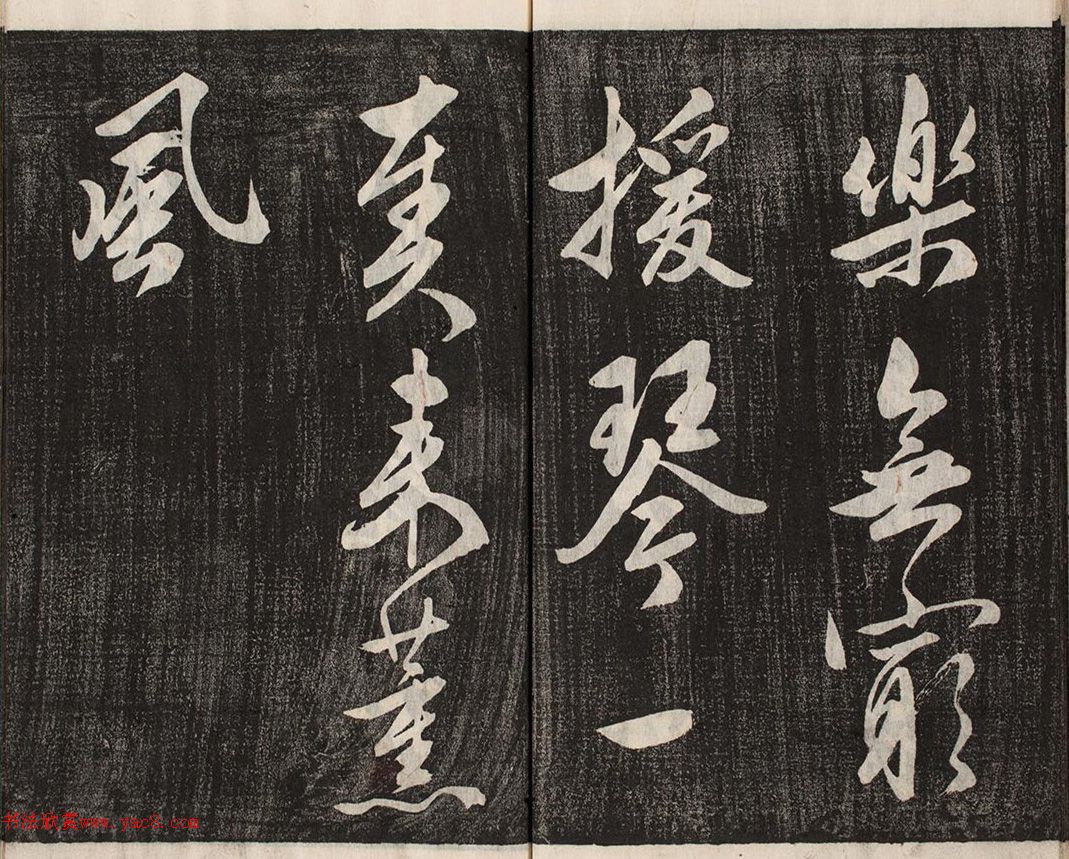 樂無窮
援琴一
奏來薰
風
书法欣赏www.yac8.com